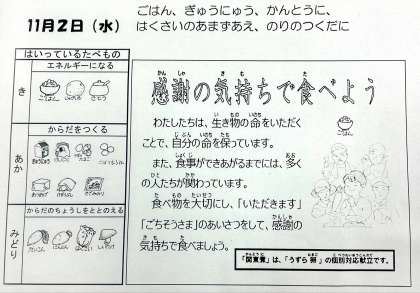 11月2日（水）
ごはん、ぎゅうにゅう、かんとうに、
はくさいのあまずあえ、のりのつくだに
はいっているたべもの
エネルギーになる
き
ごはん
さとう
からだをつくる
あか
からだのちょうしをととのえる
みどり
だいこん
感謝の気持ちで食べよう
わたしたちは、生き物の命をいただく
ことで、自分の命を保っています。
また、食事ができあがるまでには、多く
の人たちが関わっています。
食べ物を大切にし、「いただきます」
「ごちそうさま」のあいさつをして、感謝の
気持ちで食べましょう。
「関東煮」は、「うずら卵」の個別対応献立です。